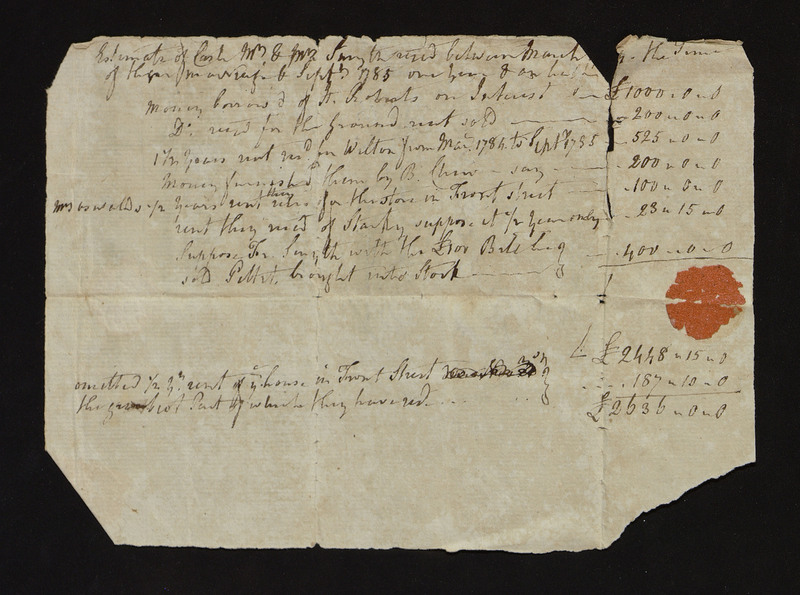 Estimate of Cash Mr. & Mrs. Smyth recd. between March the Time
of their marriage & Sepr. 1785 one Year & an half
Money borrow'd of R. Roberts on Interest £1000 " 0 " 0
Do. recd for the Ground rent sold 200 " 0 " 0
1 1/2 Years rent recd. for Wilton from Mar. 1784 to Sepr 1785 525 " 0 " 0
Money furnished them by B. Chew - say 200 " 0 " 0
Mrs Oswalds 1/2 Years rent they for the store in Front Street 100 " 0 " 0
rent they recd of suppose it 1/2 Year only 23 " 15 " 0
Suppose Fr. Smyth with the £200 Bill
sold Pettit, brought into Stock 400 " 0 " 0
£2448 " 15 " 0
omitted 1/2 Yrs. rent of ye. house in Front Street 187 " 10 " 0
the greatest Part of which they have recd.
£2636 " 0 " 0